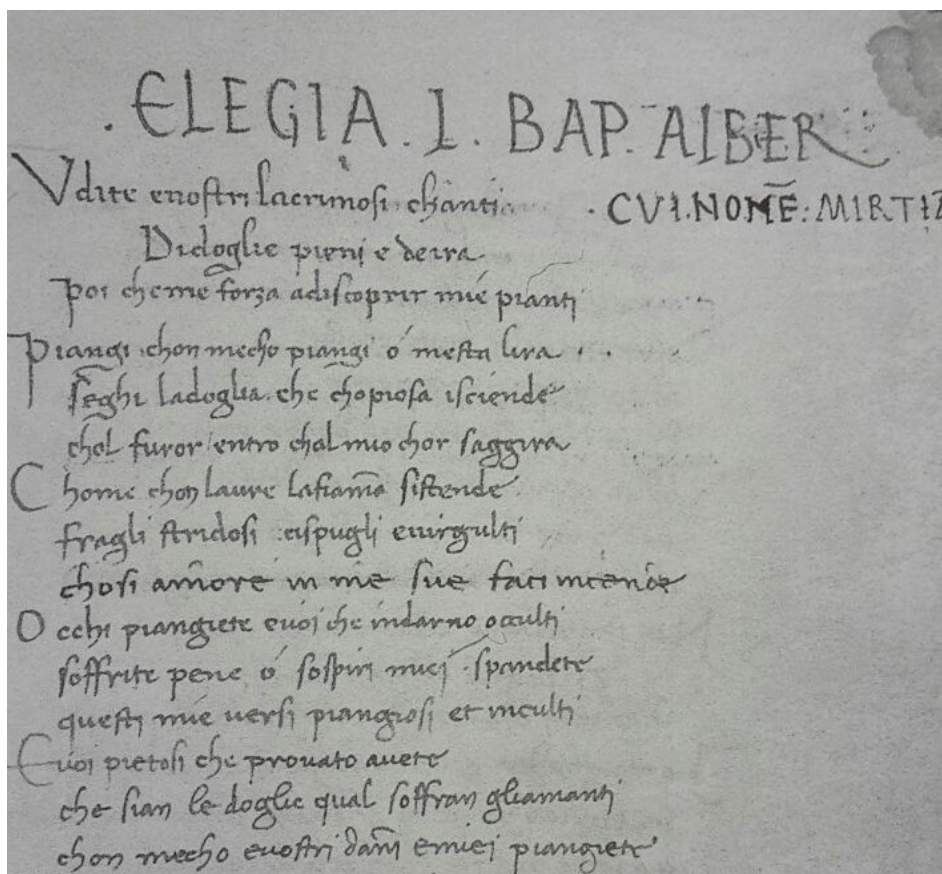 . ELEGIA . I . BAP. AlBER
Vdite enostri lacrimosi chanti
. CVI. NOMĒ: MIRTIZ
Didoglie pieni e deira
poi cheme forza adiscoprir mie pianti
Piangi chon mecho piangi ó mesta lira
seghi ladoglia che chopiosa isciende
chol furor entro chal mio chor saggira
Chome chon laure lafiam̄a sistende
fragli stridosi cispugli euirgulti
chosi amore in me sue faci incende
Occhi piangiete euoi che indarno occulti
soffrite pene ó sospiri miej spandete
questi mie uersi piangiosi et inculti
Euoi pietosi che prouato auete
che sian le doglie qual soffran gliamanti
chon mecho euostri dan̄i emiei piangiete